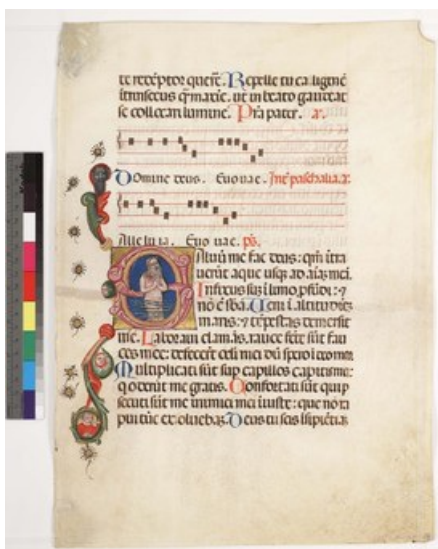 te redẽptor querit. Repelle tu caliginẽ
intrinsecus q̃maxie. ut in beato gaudeat
se collocari lumine. Pr̃a patris. a.
Domine deus. Euouae. Int̃e paschalia. a.
Alleluia. Euouae. ps.
Saluũ me fac deus: qm̃ ĩtra
uerũt aque usq; ad aĩaz mei.
Infixus suz ĩ limo pfũdi: ⁊
nõ ẽ sba. Ueni ĩ altitudinẽ
maris: ⁊ tẽpestas demersit
me. Laboraui clamãs, rauce fcẽ sũt fau
ces mee: defecerũt oculi mei dũ spero ĩ
Multiplicati sũt sup capillos capitis mei:
q oderũt me gratis. Confortati sũt qui p
secuti sũt me inimici mei iniuste: que nõ ra
pui tũc exoluebaz. Deus tu scis ĩsipiẽtiã